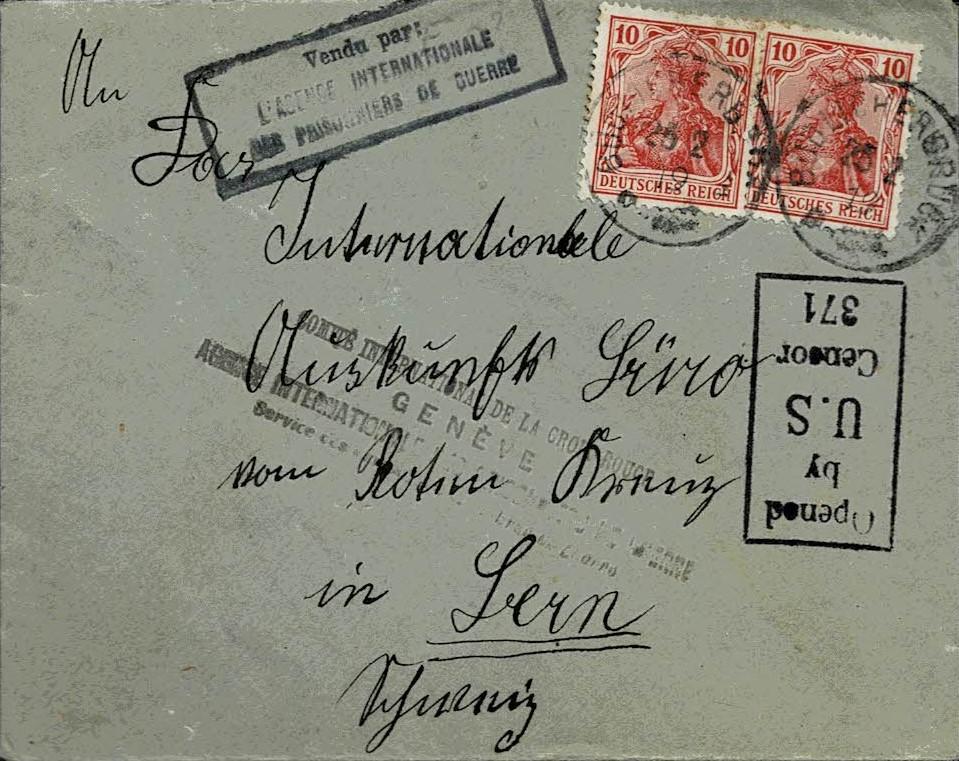 Vendu par:
L'AGENCE INTERNATIONALE
DES PRISONNIERS DE GUERRE
10 10
DEUTSCHES REICH
10 10
DEUTSCHES REICH
25 2
19
An
Das
Internationale
Auskunfts Büro
vom Roten Kreuz
in Bern
Schweiz
COMITÉ INTERNATIONAL DE LA CROIX-ROUGE
GENÈVE
AGENCE INTERNATIONALE
Service
Opened
by
U.S
Censor
371